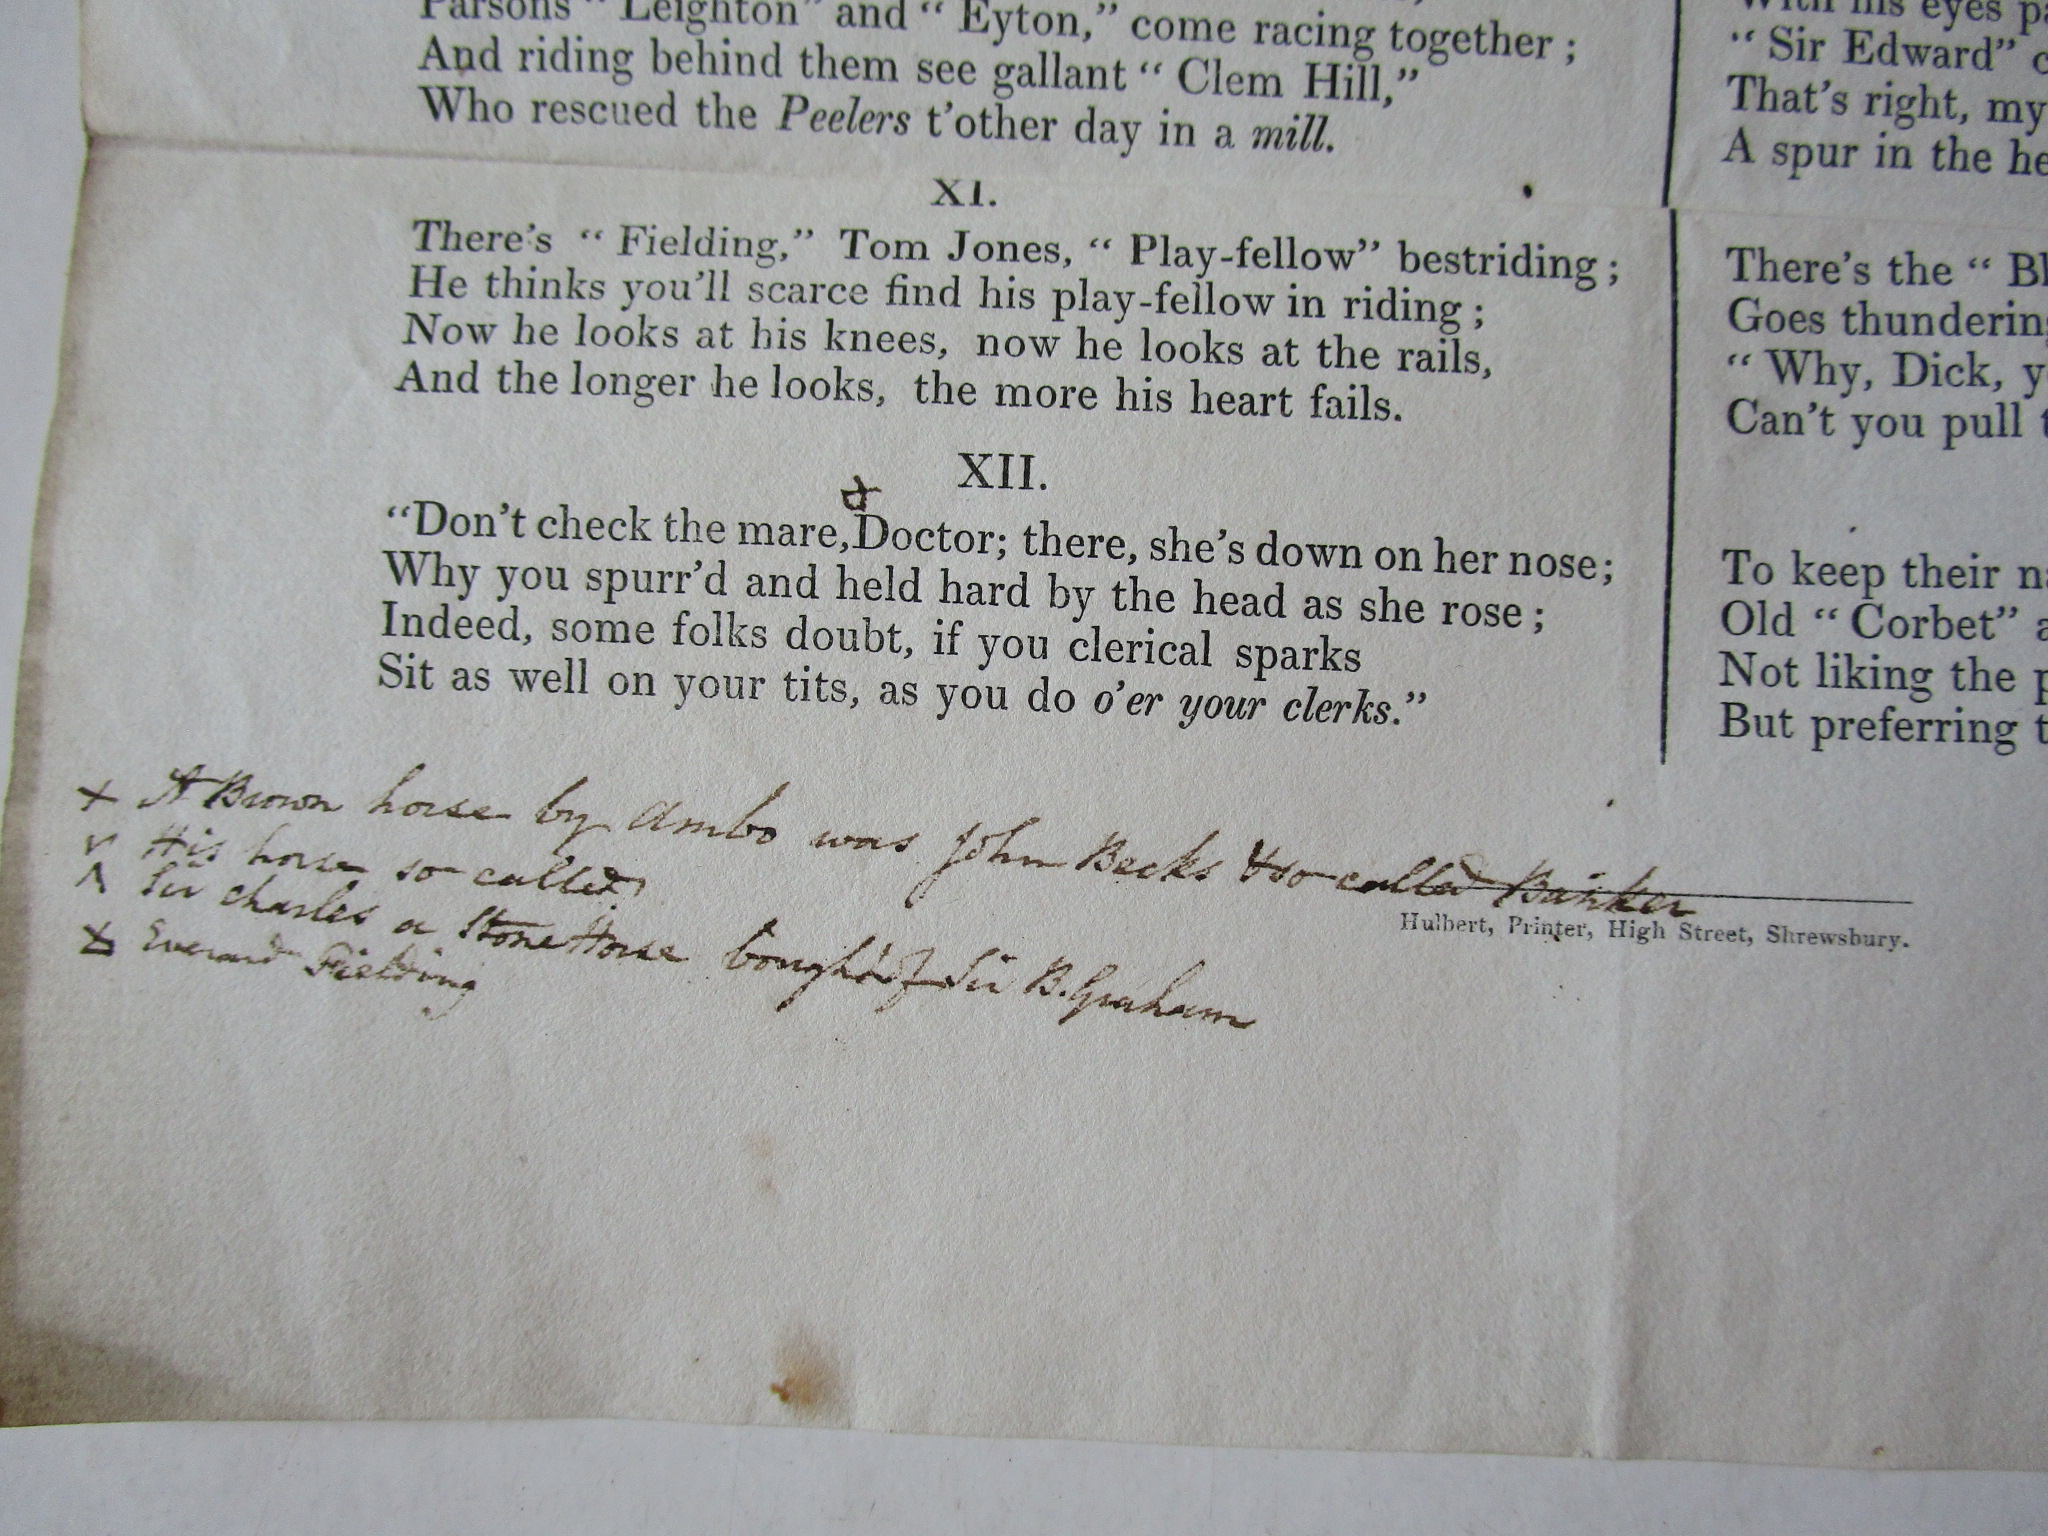 Parsons “ Leighton” and “ Eyton,” come racing together ;
And riding behind them see gallant “ Clem Hill,”
Who rescued the Peelers t’other day in a mill.
XI.
There’s “ Fielding,” Tom Jones, “ Play-fellow” bestriding ;
He thinks you’ll scarce find his play-fellow in riding ;
Now he looks at his knees, now he looks at the rails,
And the longer he looks, the more his heart fails.
XII.
“Don’t check the mare, Doctor; there, she’s down on her nose;
Why you spurr’d and held hard by the head as she rose ;
Indeed, some folks doubt, if you clerical sparks
Sit as well on your tits, as you do o’er your clerks.”
+ A Brown horse by Ambo was John Becks & so called Banker
v His horse so called
^ Sir Charles a Stone Horse bought of Sir B. Graham
Everard Fielding
Hulbert, Printer, High Street, Shrewsbury.
With his eyes
“ Sir Edward”
That’s right, my
A spur in the
There’s the “
Goes
“ Why, Dick,
Can’t you pull
To keep their
Old “ Corbet”
Not liking the
But preferring